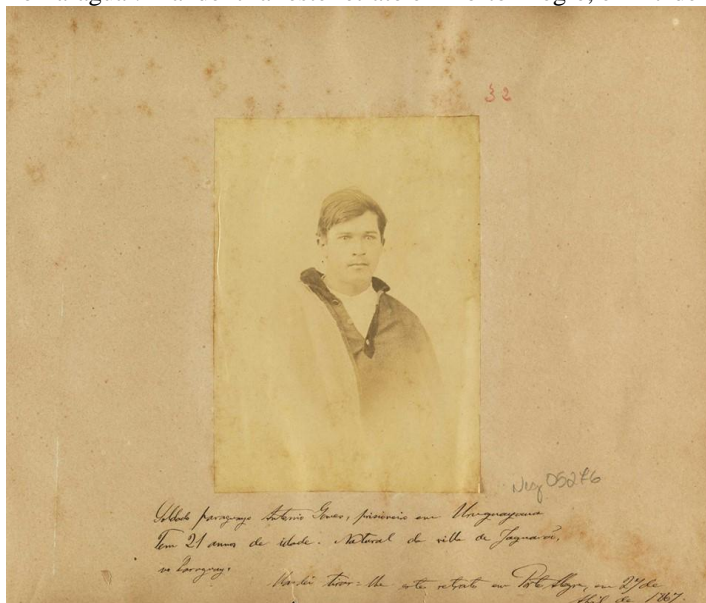 32
Neg 05276
Soldado paraguayo Antonio prisioneiro em Uruguayana
Tem 21 annos de idade. Natural da villa de Jaguarú,
no Paraguay.
Mandei tirar-lhe este retrato em Porto Alegre, em 27 de
Abril de 1867.